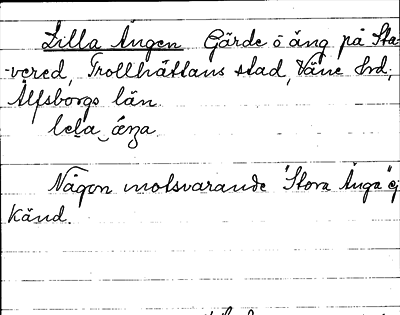 Lilla Ängen Gärde o äng på Sta-
-vered, Trollhättans stad, Väne hrd,
Älfsborgs län.
Någon motsvarande "Stora Änga" ej
känd.